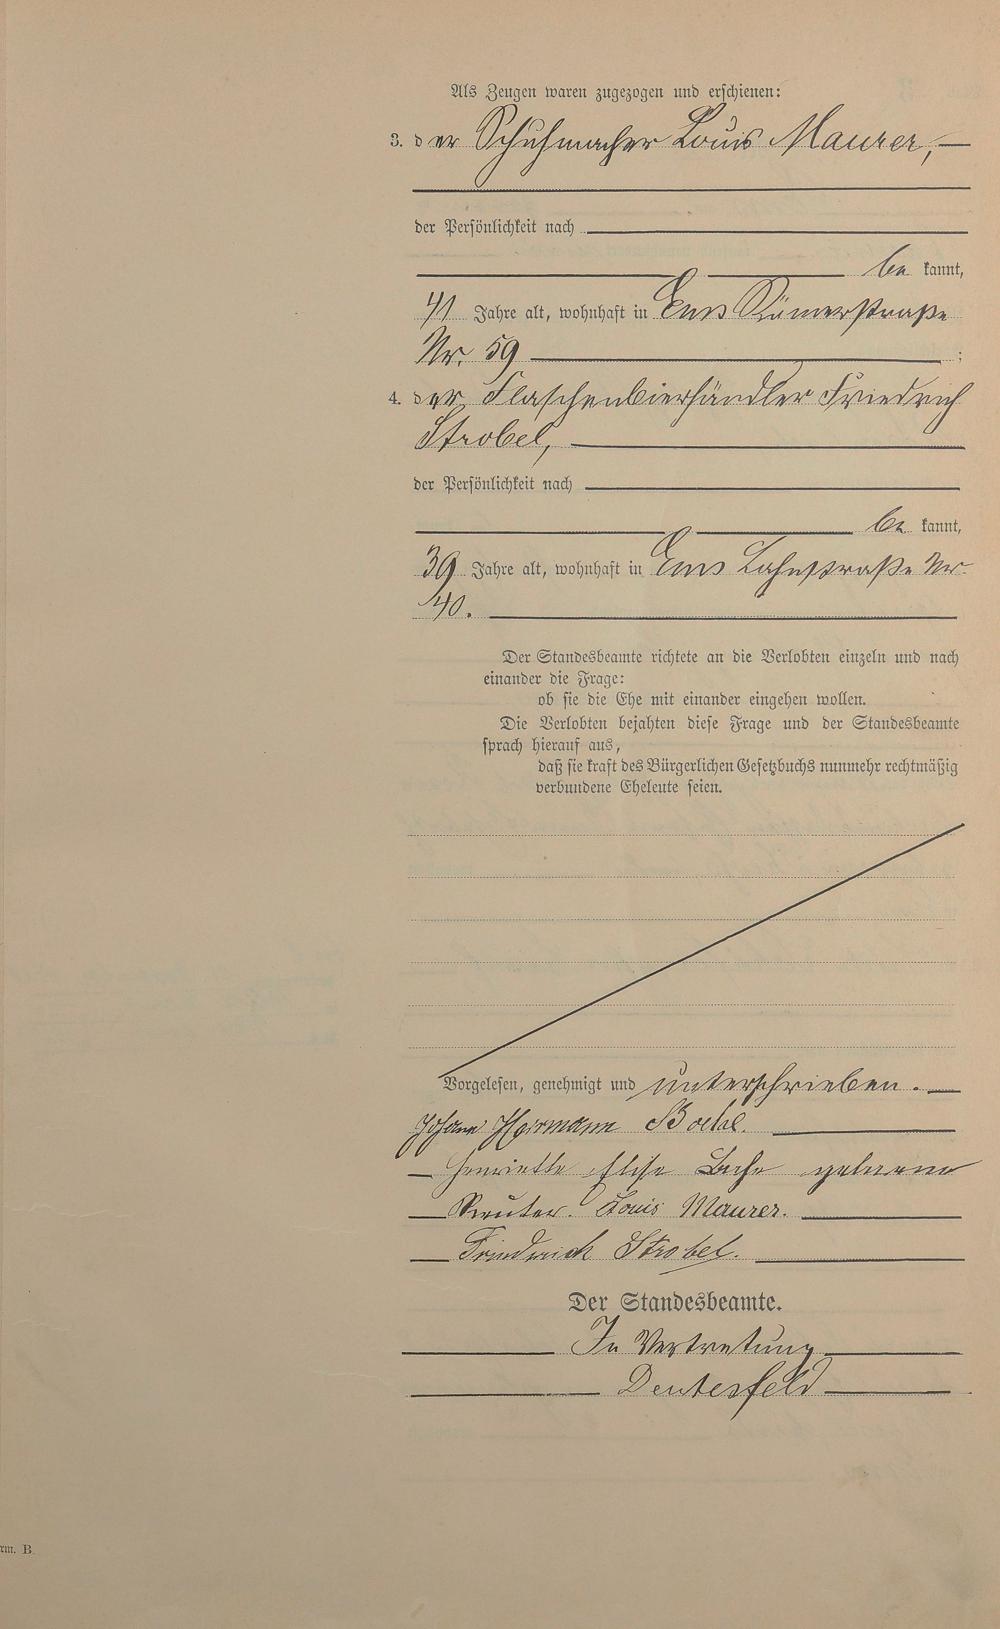 Als Zeugen waren zugezogen und erschienen:
3. der Schuhmacher Louis Maurer,
der Persönlichkeit nach
be kannt,
41 Jahre alt, wohnhaft in Ems Römerstraße
Nr. 59 ;
4. der Flaschenbierhändler Friedrich
Strobel,
der Persönlichkeit nach
be kannt,
39 Jahre alt, wohnhaft in Ems Lahnstraße Nr.
40.
Der Standesbeamte richtete an die Verlobten einzeln und nach
einander die Frage:
ob sie die Ehe mit einander eingehen wollen.
Die Verlobten bejahten diese Frage und der Standesbeamte
sprach hierauf aus,
daß sie kraft des Bürgerlichen Gesetzbuchs nunmehr rechtmäßig
verbundene Eheleute seien.
Vorgelesen, genehmigt und unterschrieben.
Johann Hermann
Henriette Elise geborene
Louis Maurer.
Friedrich Strobel.
Der Standesbeamte.
In Vertretung
rm. B.